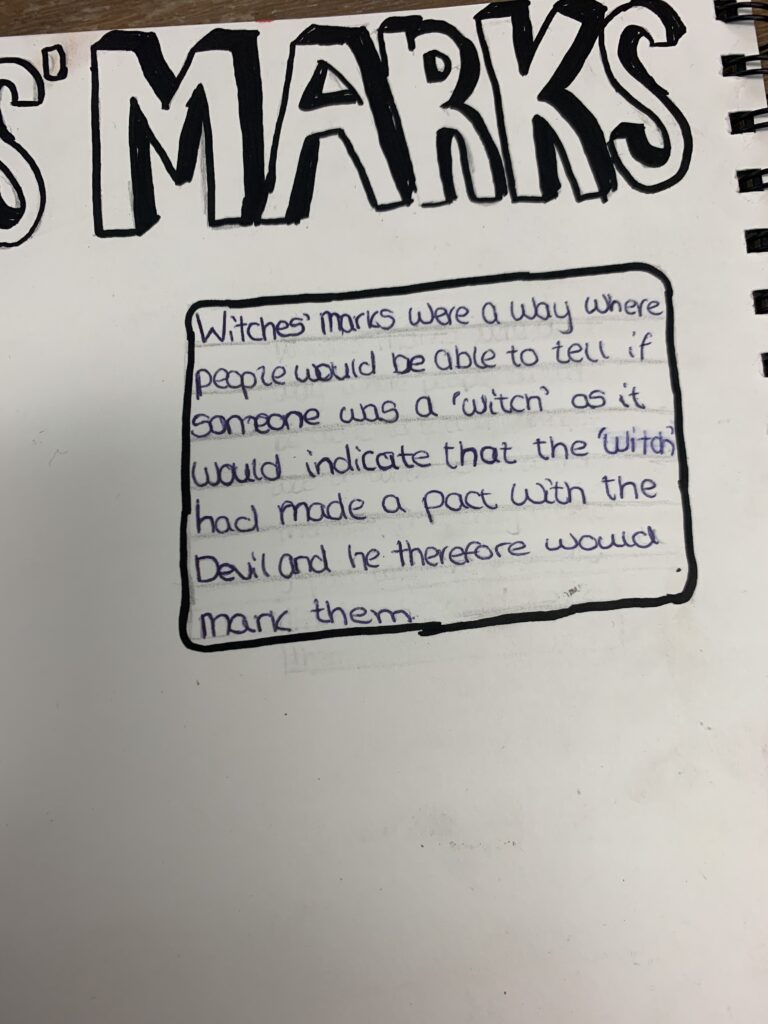 S' MARKS
Witches' marks were a way where
people would be able to tell if
someone was a 'witch' as it
would indicate that the 'witch'
had made a pact with the
Devil and he therefore would
mark them.